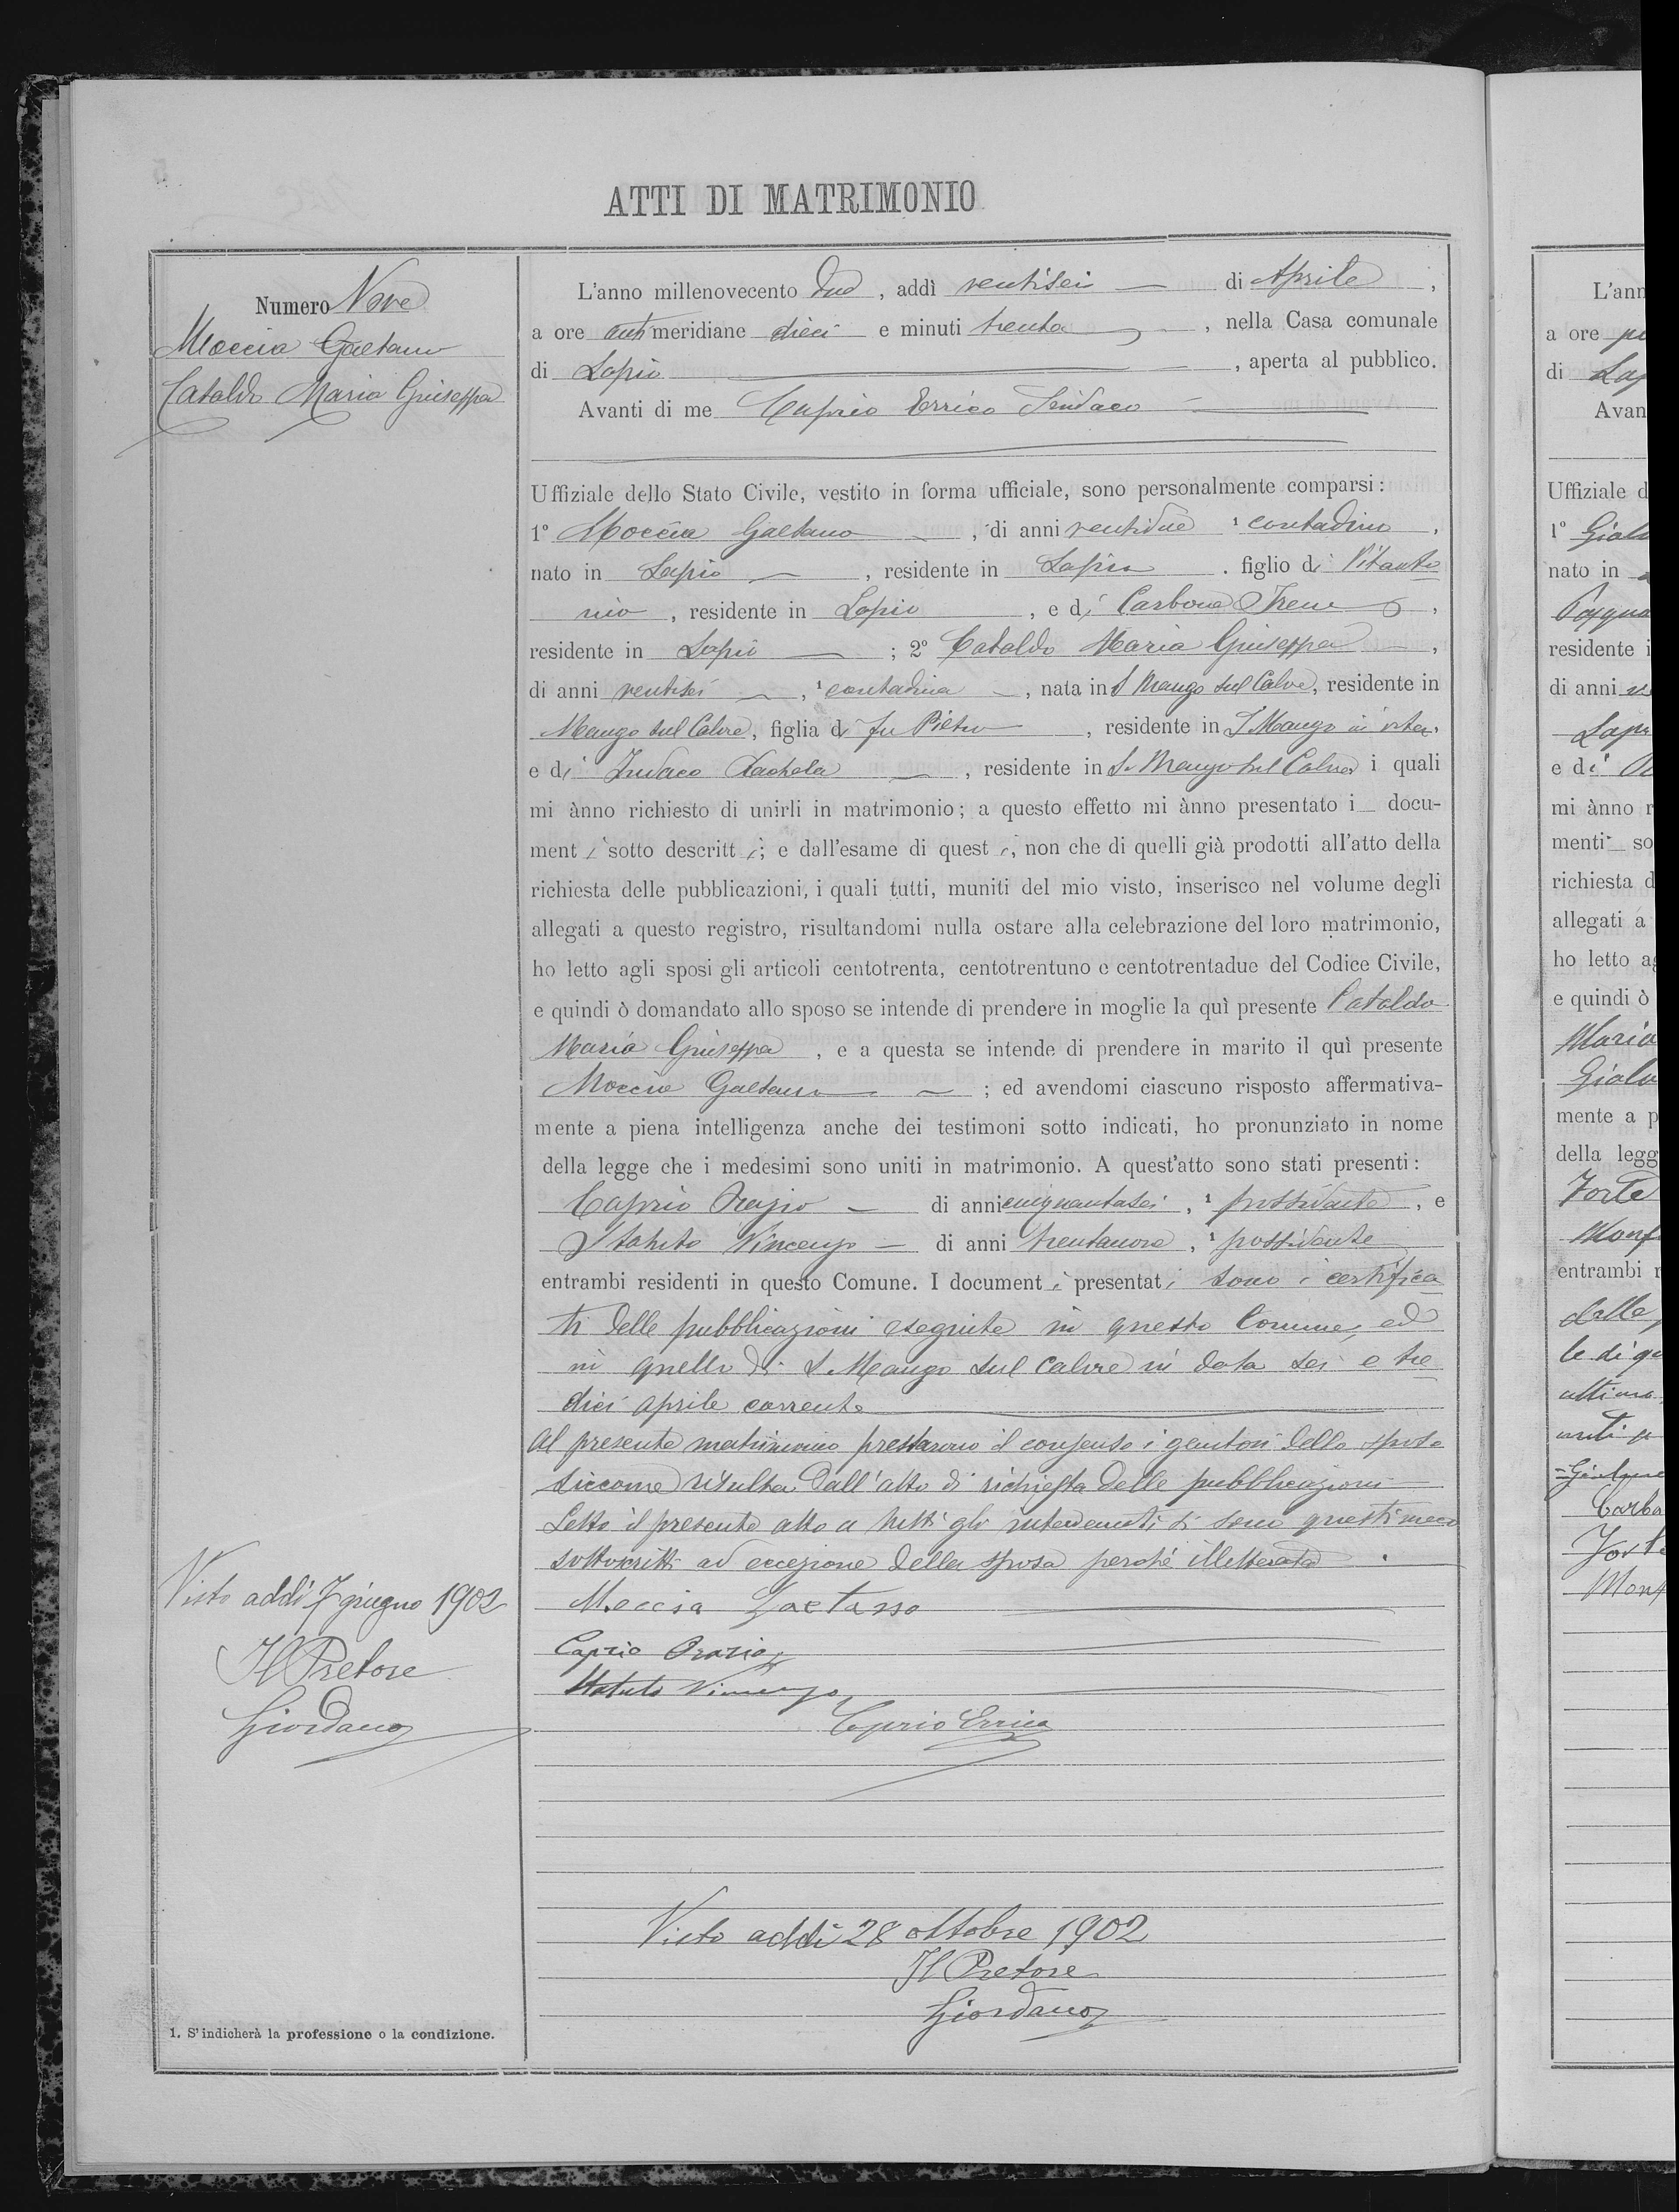 ATTI DI MATRIMONIO
Numero Nove
Moccia Gaetano
Cataldo Maria Giuseppa
L'anno millenovecento due, addì ventisei di Aprile,
a ore anti meridiane dieci e minuti trenta, nella Casa comunale
di Lapio, aperta al pubblico.
Avanti di me Caprio Errico Sindaco
Uffiziale dello Stato Civile, vestito in forma ufficiale, sono personalmente comparsi:
1° Moccia Gaetano, di anni ventidue 1 contadino,
nato in Lapio, residente in Lapio. figlio di Vitanto
nio, residente in Lapio, e di Carbone Irene,
residente in Lapio; 2° Cataldo Maria Giuseppa,
di anni ventisei, 1 contadina, nata in S Mango sul Calore, residente in
Mango sul Calore, figlia di fu Pietro, residente in S Mango in vita,
e di Rachela, residente in S. Mango sul Calore i quali
mi ànno richiesto di unirli in matrimonio; a questo effetto mi ànno presentato i docu-
menti sotto descritti; e dall'esame di questi, non che di quelli già prodotti all'atto della
richiesta delle pubblicazioni, i quali tutti, muniti del mio visto, inserisco nel volume degli
allegati a questo registro, risultandomi nulla ostare alla celebrazione del loro matrimonio,
ho letto agli sposi gli articoli centotrenta, centotrentuno e centotrentadue del Codice Civile,
e quindi ò domandato allo sposo se intende di prendere in moglie la quì presente Cataldo
Maria Giuseppa, e a questa se intende di prendere in marito il quì presente
Moccia Gaetano; ed avendomi ciascuno risposto affermativa-
mente a piena intelligenza anche dei testimoni sotto indicati, ho pronunziato in nome
della legge che i medesimi sono uniti in matrimonio. A quest'atto sono stati presenti:
Caprio Orazio di anni cinquantasei, 1 possidente, e
Statuto Vincenzo di anni trentanove, 1 possidente
entrambi residenti in questo Comune. I documenti presentati sono i certifica
ti delle pubblicazioni eseguite in questo Comune, ed
in quello di S. Mango sul Calore in data sei e tre
dici aprile corrente
Al presente matrimonio prestarono il consenso i genitori dello sposo
siccome risulta dall'atto di richiesta delle pubblicazioni
Letto il presente atto a tutti gli intervenuti si sono questi meco
sottoscritti ad eccezione della sposa perché illetterata.
Moccia Gaetano
Caprio Orazio
Statuto Vincenzo
Caprio Errico
Visto addì 7 giugno 1902
Il Pretore
Giordano
Visto addì 28 ottobre 1902
Il Pretore
Giordano
1. S'indicherà la professione o la condizione.
L'ann
a ore po
di Lap
Avan
Uffiziale d
1° Giala
nato in
Pasqua
residente i
di anni
Lapi
e di
mi ànno r
menti so
richiesta d
allegati a
ho letto ag
e quindi ò
Maria
Giala
mente a p
della legg
Forte
Monf
entrambi r
dalle
le di qu
ultimo
Carbo
Forte
Monf